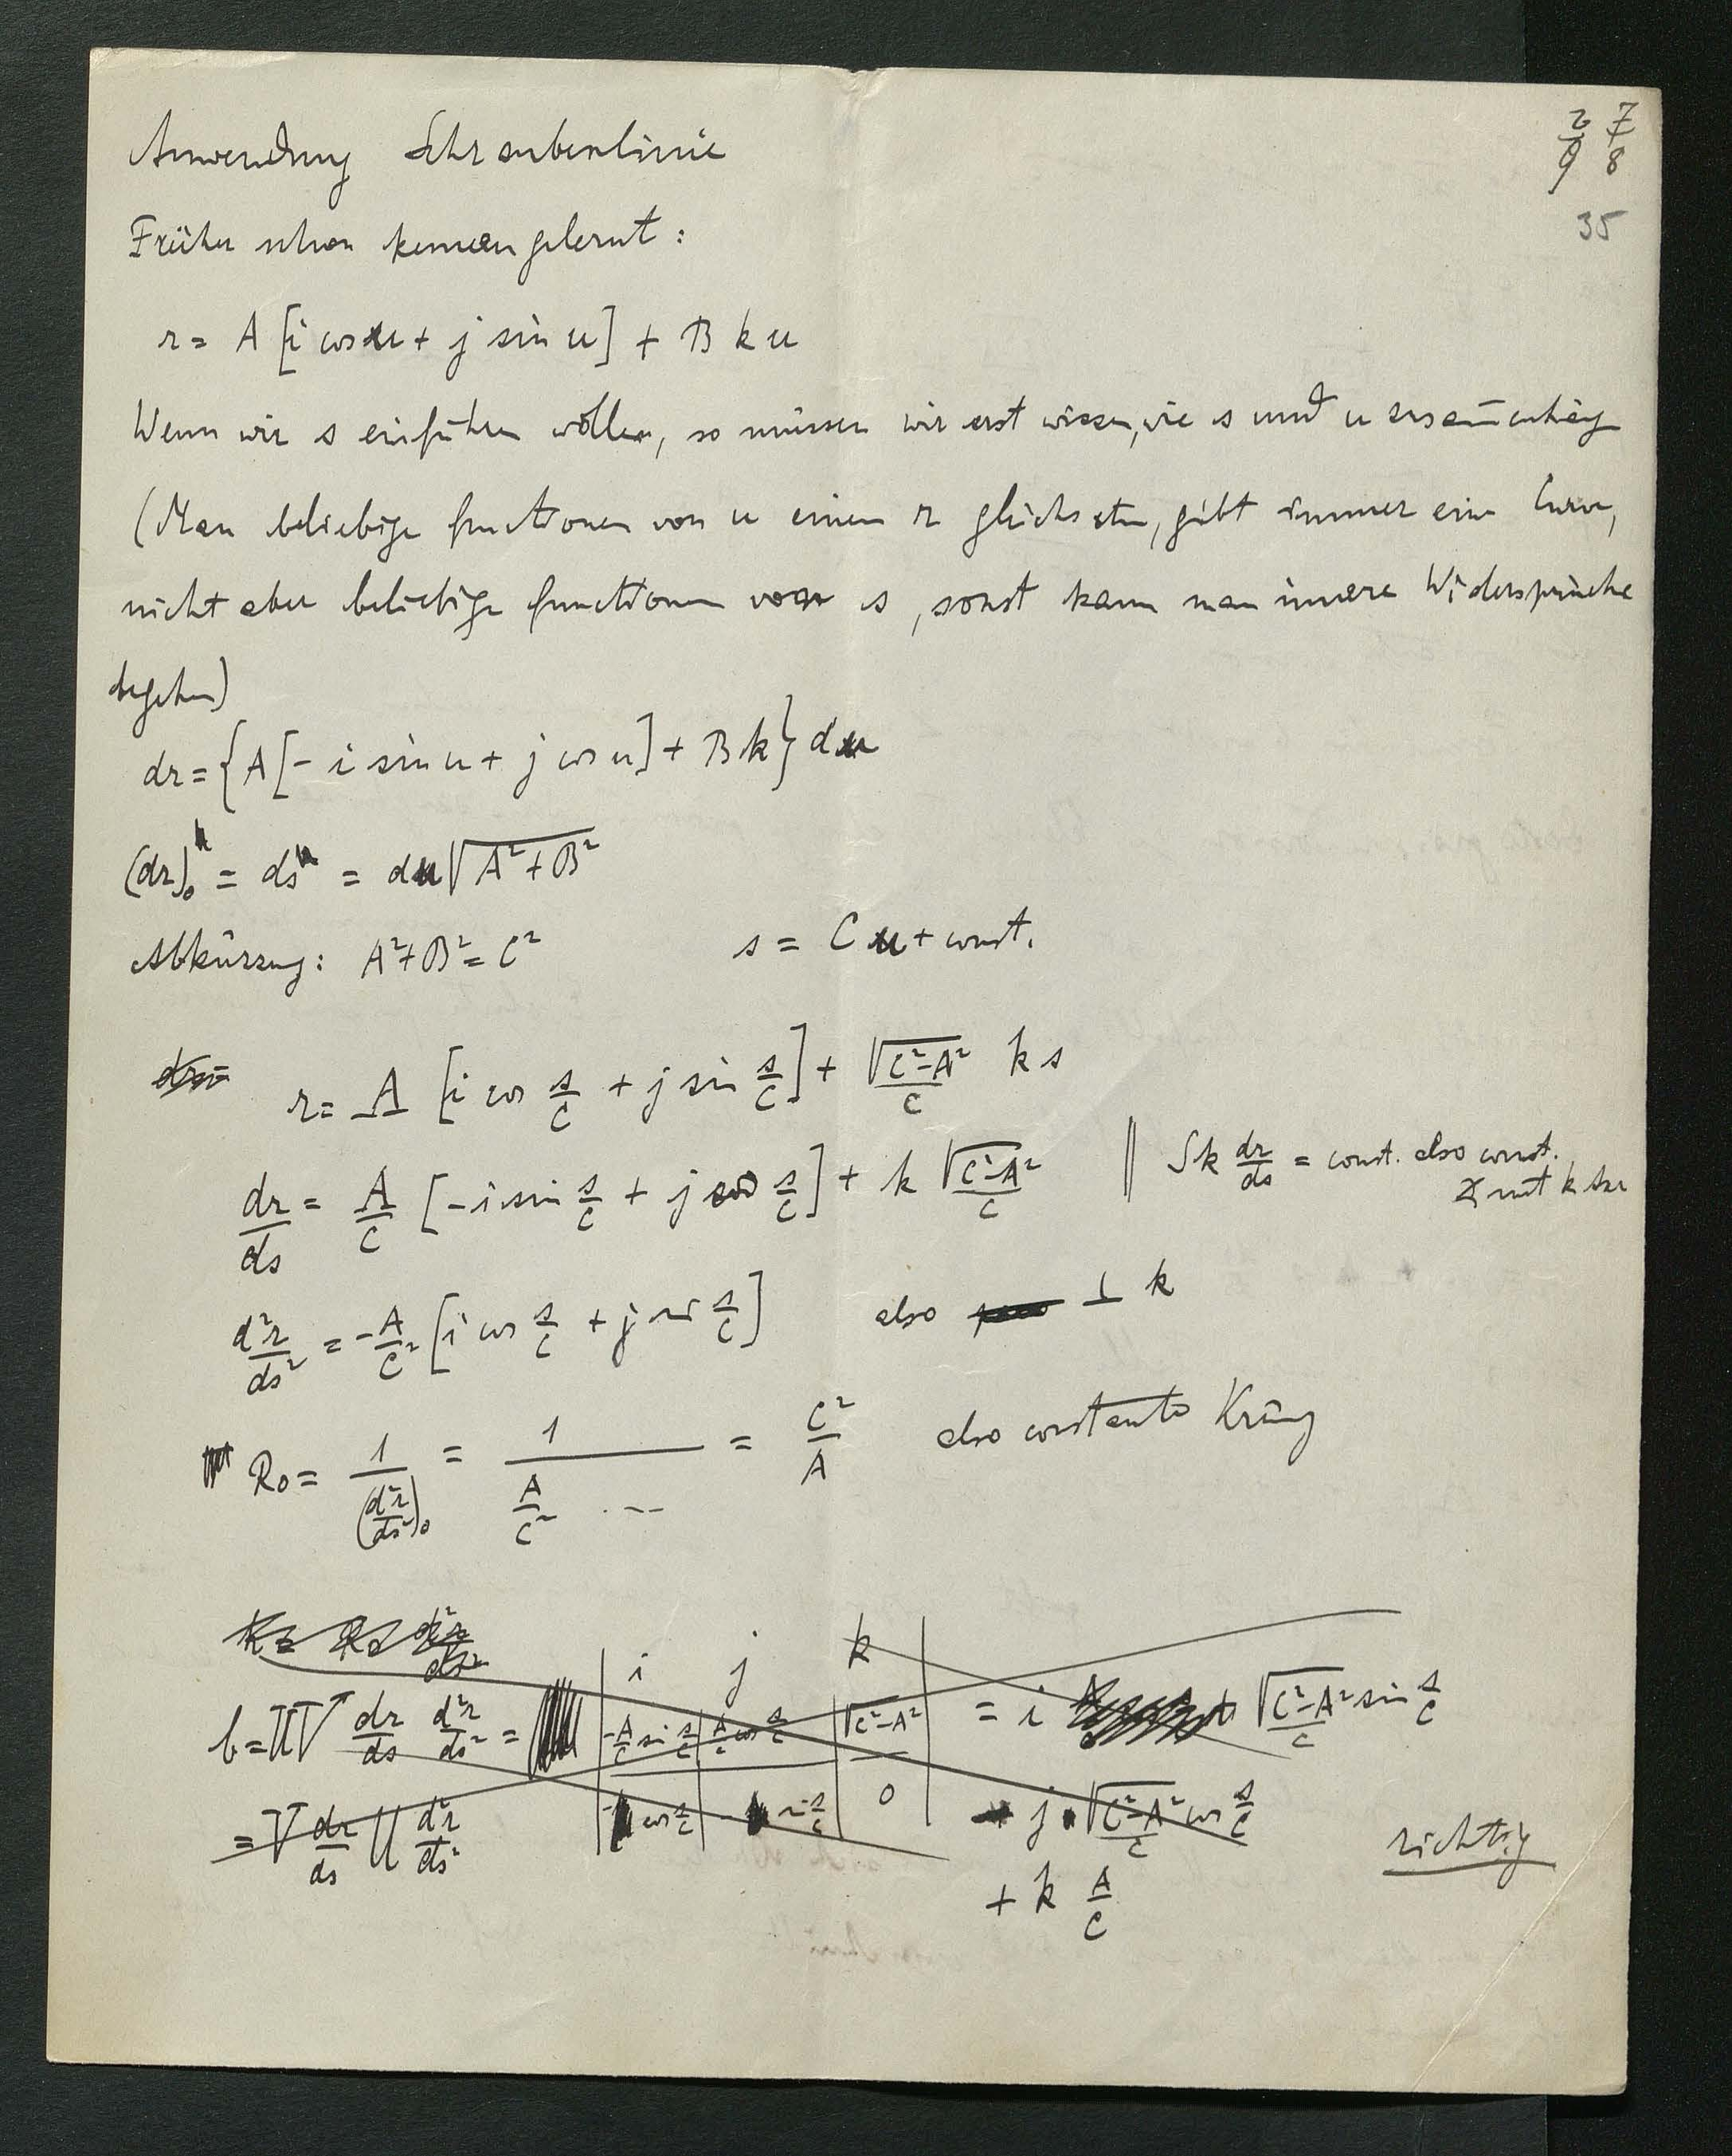 2/9 7/8
35
Anwendung Schraubenlinie
Früher schon kennen gelernt:
r = A [i cos u + j sin u] + B k u
Wenn wir s einführen wollen, so müssen wir erst wissen, wie s und u
(Man beliebige functionen von u einem r gleichsetzen, gibt immer eine Curve,
nicht aber beliebige functionen von s, sonst kann man innere Widersprüche
begehen)
dr = {A [- i sin u + j cos u] + B k} du
(dr)₀ = ds = du √(A² + B²)
Abkürzung: A² + B² = C² s = C u + const.
r = A [i cos s/C + j sin s/C] + √(C²-A²)/C k s
dr/ds = A/C [- i sin s/C + j cos s/C] + k √(C²-A²)/C || S k dr/ds = const. also const.
∡ mit k
d²r/ds² = - A/C² [i cos s/C + j sin s/C] also ⊥ k
R₀ = 1/(d²r/ds²)₀ = 1/(A/C² ...) = C²/A also constante
R = R₀² d²r/ds²
i j k
b = UV dr/ds d²r/ds² = | -A/C sin s/C | A/C cos s/C | √(C²-A²)/C | = i √(C²-A²)/C sin s/C
= V dr/ds U d²r/ds² | - cos s/C | - sin s/C | 0 | - j √(C²-A²)/C cos s/C
+ k A/C
richtig